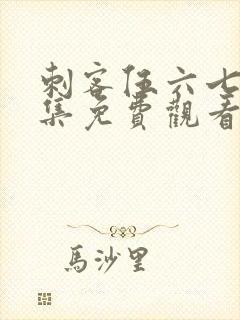 刺客伍六七
集免費觀看
馬沙里